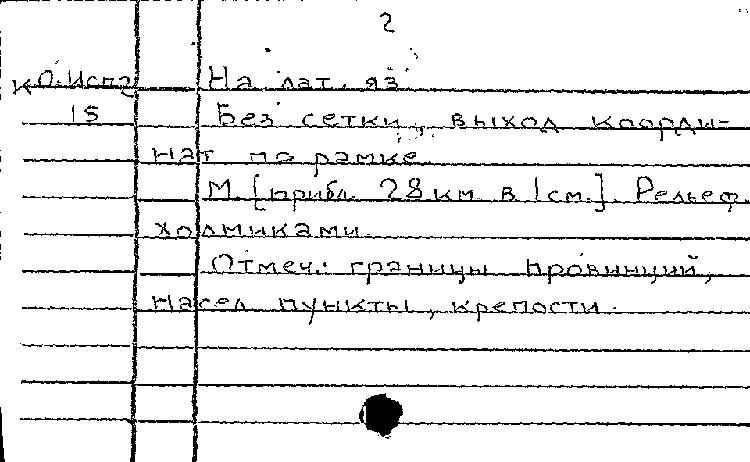 2
КО.Исп2 На лат. яз.
15 Без сетки, выход коорди-
нат по рамке.
М. [прибл. 28 км в 1 см.]. Рельеф
холмиками.
Отмеч.: границы провинций,
насел. пункты, крепости.